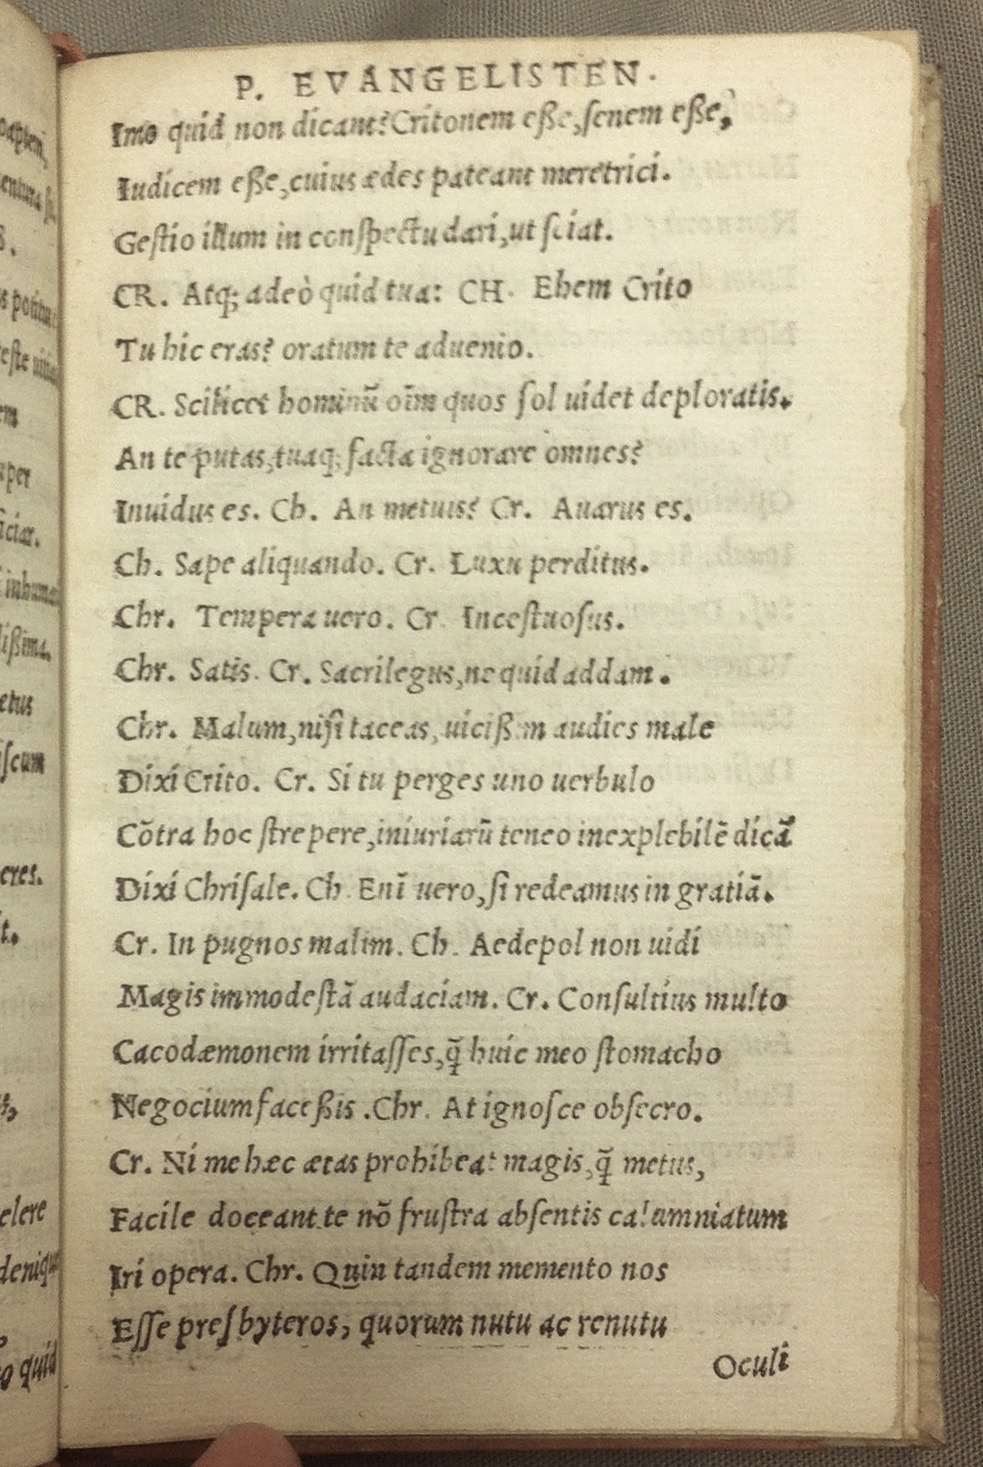 P. EVANGELISTEN.
Imo quid non dicant? Critonem eße, senem eße,
Iudicem eße, cuius ædes pateant meretrici.
Gestio illum in conspectu dari, ut sciat.
CR. Atq; adeò quid tua: CH. Ehem Crito
Tu hic eras? oratum te aduenio.
CR. Scilicet hominũ oĩm quos sol uidet deploratis.
An te putas, tuaq; facta ignorare omnes?
Inuidus es. Ch. An metuis? Cr. Auarus es.
Ch. Sape aliquando. Cr. Luxu perditus.
Chr. Tempera uero. Cr. Incestuosus.
Chr. Satis. Cr. Sacrilegus, ne quid addam.
Chr. Malum, nisi taceas, uicißim audies male
Dixi Crito. Cr. Si tu perges uno uerbulo
Cõtra hoc strepere, iniuriarũ teneo inexplebilẽ dicã
Dixi Chrisale. Ch. Enĩ uero, si redeamus in gratiã.
Cr. In pugnos malim. Ch. Aedepol non uidi
Magis immodestã audaciam. Cr. Consultius multo
Cacodæmonem irritasses, q̃ huic meo stomacho
Negocium faceßis. Chr. At ignosce obsecro.
Cr. Ni me hæc ætas prohibeat magis, q̃ metus,
Facile doceant te nõ frustra absentis calumniatum
Iri opera. Chr. Quin tandem memento nos
Esse presbyteros, quorum nutu ac renutu
Oculi